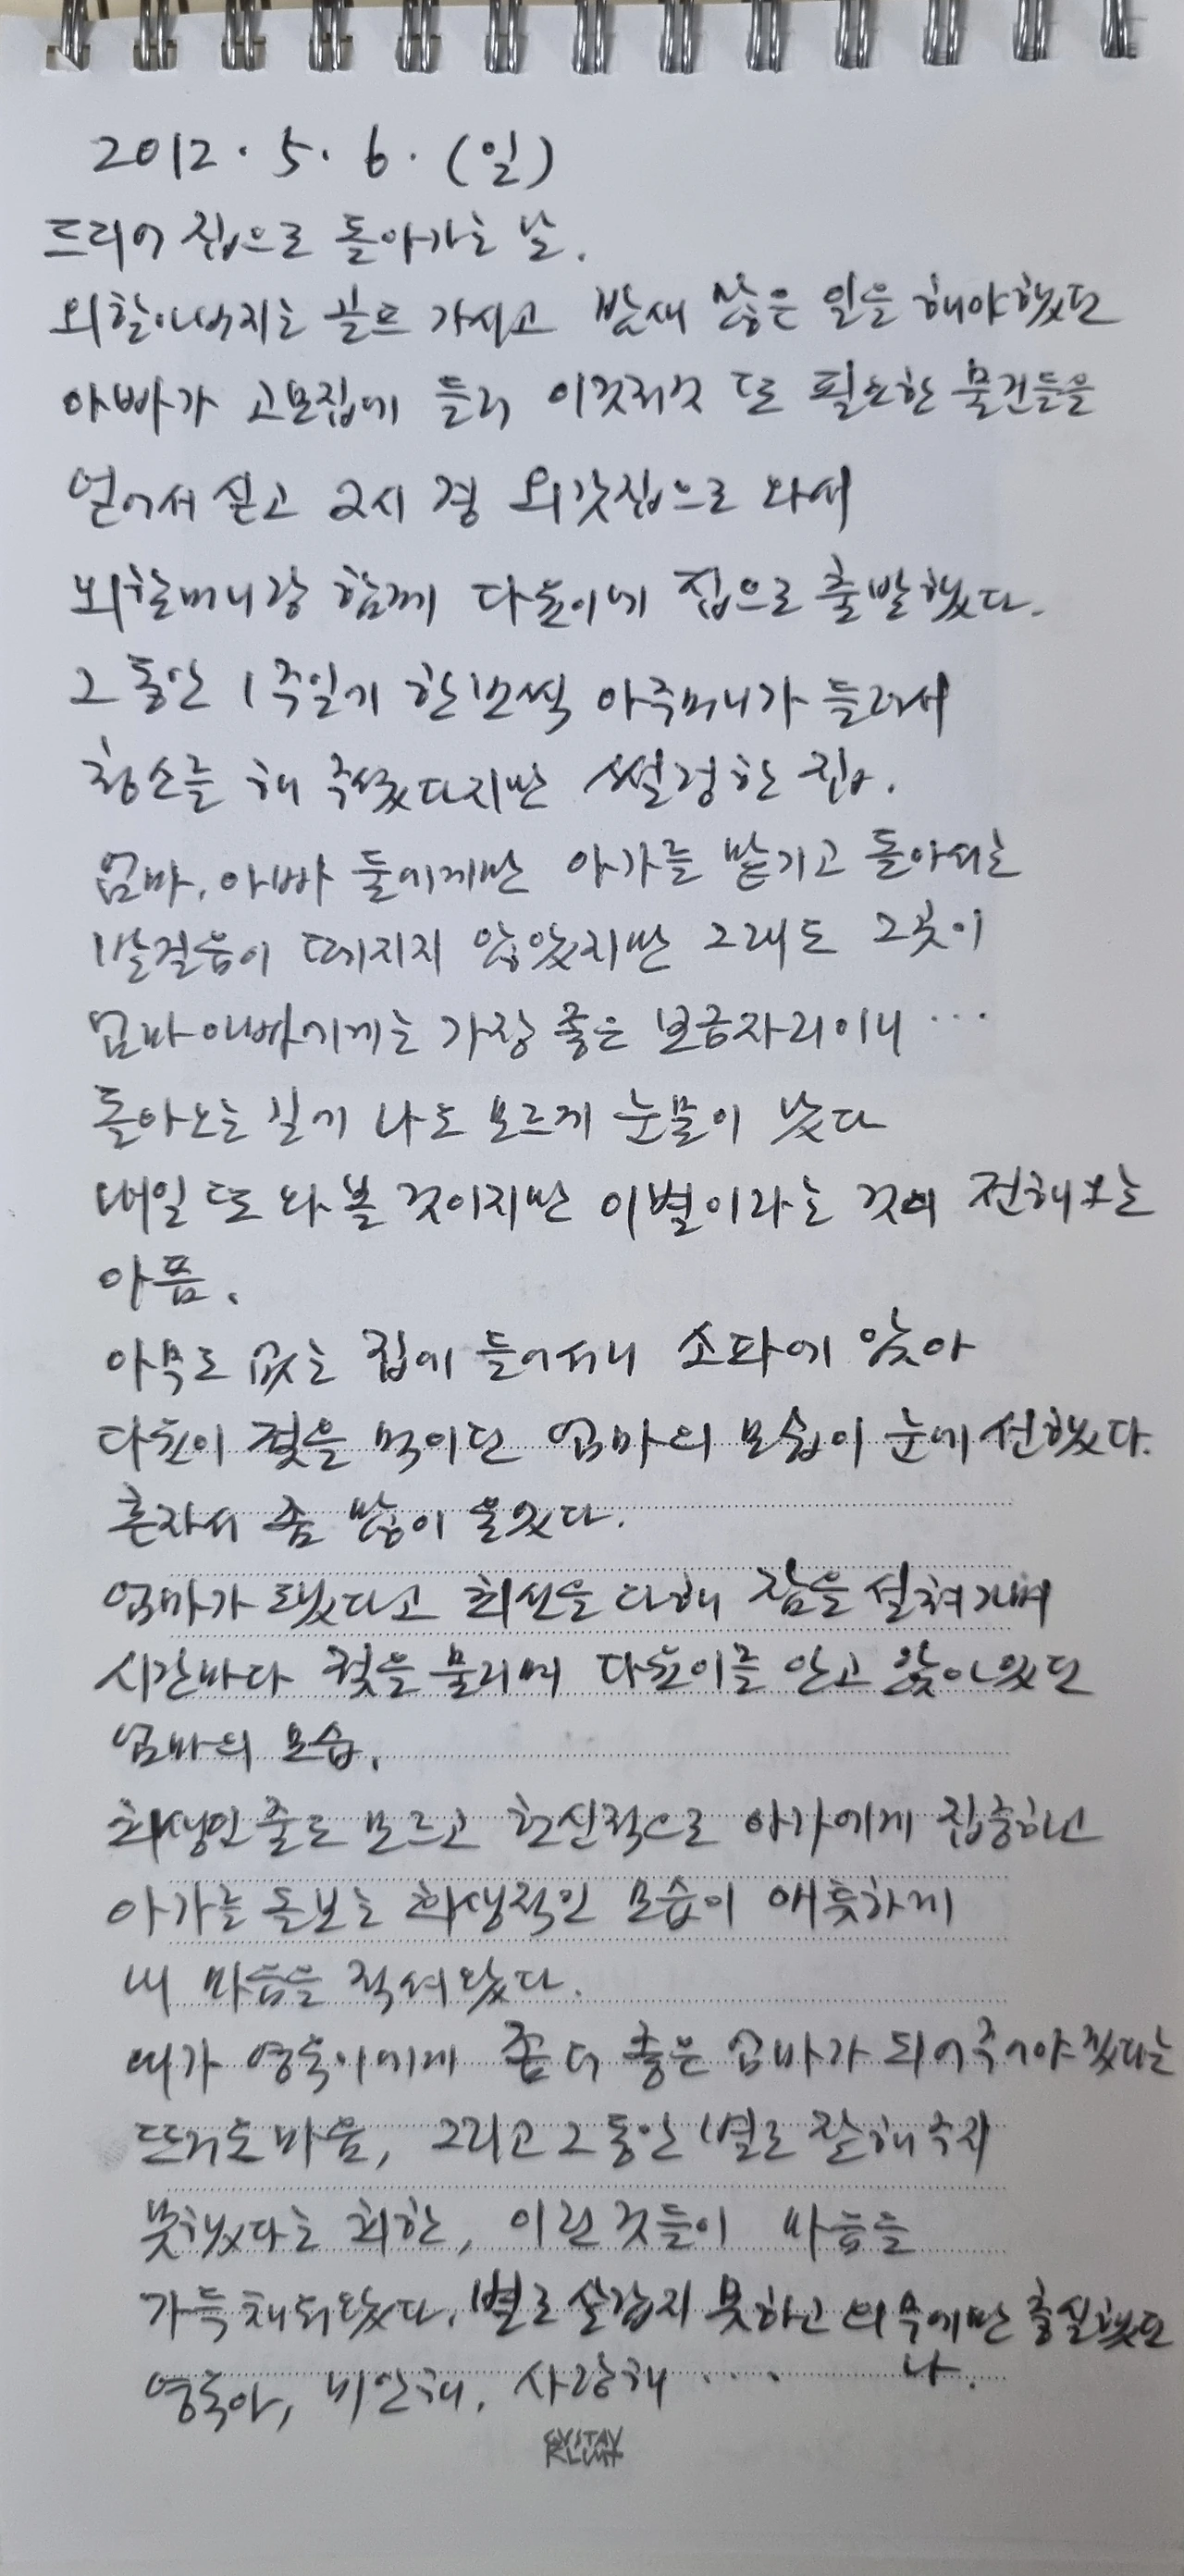 2012. 5. 6. (일)
드디어 집으로 돌아가는 날.
외할아버지는 골프 가시고 밤새 많은 일을 해야했던
아빠가 고모집에 들러 이것저것 또 필요한 물건들을
얻어서 싣고 2시 경 외갓집으로 와서
외할머니랑 함께 다윤이네 집으로 출발했다.
그 동안 1주일에 한번씩 아주머니가 들러서
청소를 해 주셨다지만 썰렁한 집.
엄마, 아빠 둘에게만 아가를 맡기고 돌아서는
발걸음이 떼지지 않았지만 그래도 그곳이
엄마아빠에게는 가장 좋은 보금자리이니...
돌아오는 길에 나도 모르게 눈물이 났다
내일 또 와 볼 것이지만 이별이라는 것이 전해오는
아픔.
아무도 없는 집에 들어서니 소파에 앉아
다윤이 젖을 먹이던 엄마의 모습이 눈에 선했다.
혼자서 좀 많이 울었다.
엄마가 됐다고 최선을 다해 잠을 설쳐가며
시간마다 젖을 물리며 다윤이를 안고 앉아있던
엄마의 모습.
희생인 줄도 모르고 헌신적으로 아가에게 집중하던
아가를 돌보는 희생적인 모습이 애틋하게
내 마음을 적셔왔다.
내가 영숙이에게 좀 더 좋은 엄마가 되어주어야겠다는
뜨거운 마음, 그리고 그 동안 별로 잘해주지
못했다는 회한, 이런 것들이 마음을
가득 채워왔다. 별로 살갑지 못하고 의무에만 충실했던
나.
영숙아, 미안해, 사랑해....
GUSTAV
KLIMT